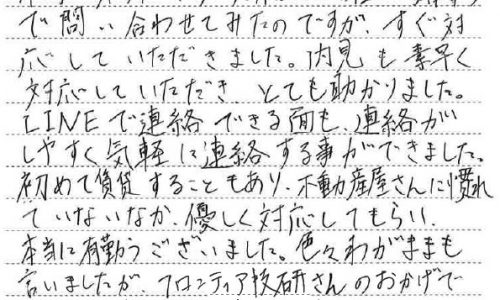 で問い合わせてみたのですが、すぐ対
応していただきました。内見も素早く
対応していただき とても助かりました。
LINEで連絡できる面も、連絡が
しやすく気軽に連絡する事ができました。
初めて賃貸することもあり、不動産屋さんに慣れ
ていないなか、優しく対応してもらい、
本当に有難うございました。色々わがままも
言いましたが、フロンティア技研さんのおかげで